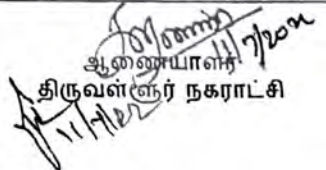 11/7/2022
ஆணையாளர்
திருவள்ளூர் நகராட்சி
11/7/22